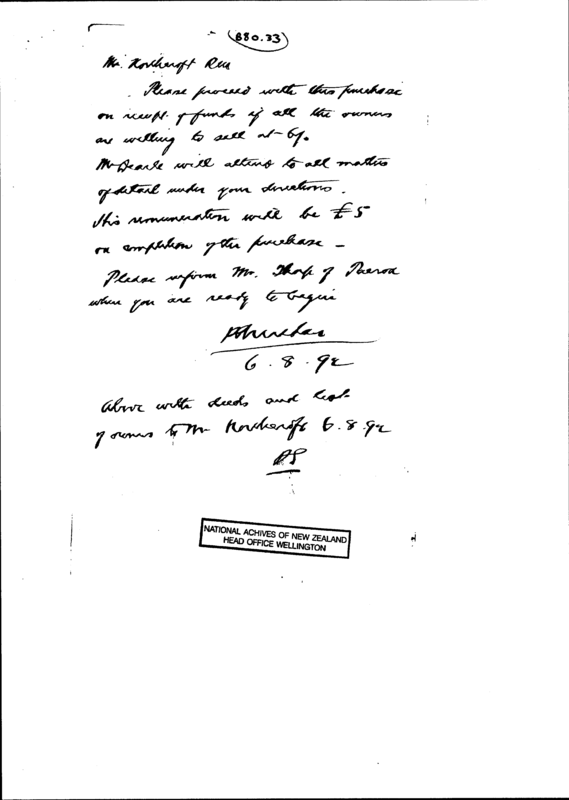 B80.33
Mr.
Please proceed with this purchase
on receipt of funds if all the owners
are willing to sell at 6/.
Mr Dearle will attend to all matters
of detail under your directions.
His remuneration will be £5
on completion of the purchase –
Please inform Mr. Thorp of Paeroa
when you are ready to begin
6.8.92
Above with deeds and list
of owners to Mr 6.8.92
NATIONAL ACHIVES OF NEW ZEALAND
HEAD OFFICE WELLINGTON